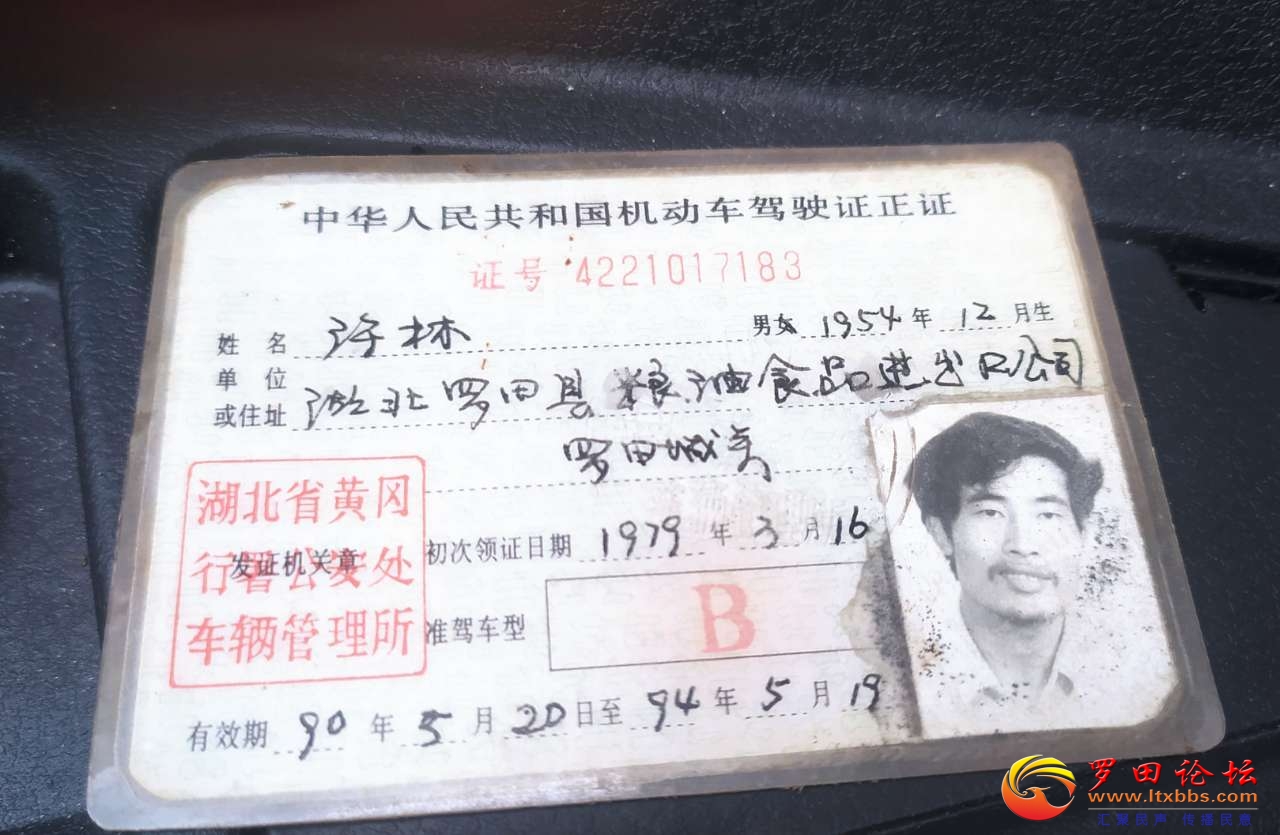 中华人民共和国机动车驾驶证正证
证号 4221017183
姓名 许林 男女 1954年12月生
单位
或住址 湖北罗田县粮油食品进出口公司
罗田城关
湖北省黄冈
行署公安处
车辆管理所
发证机关章
初次领证日期 1979年3月16
准驾车型 B
有效期 90年5月20日至94年5月19
罗田论坛
www.ltxbbs.com
汇聚民声 传播民意